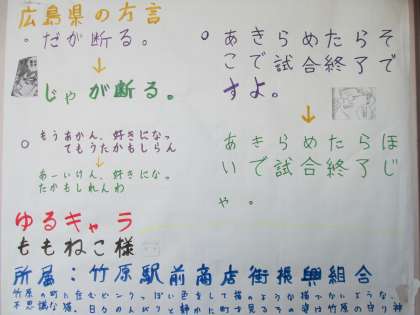 広島県の方言
。だが断る。
↓
じゃが断る。
。もうあかん、好きになっ
てもうたかもしらん
↓
あーいけん、好きにな。
たかもしれんわ
。あきらめたらそ
こで試合終了で
すよ。
↓
あきらめたらほ
いで試合終了じ
ゃ。
ゆるキャラ
ももねこ様
所属：竹原駅前商店街振興組合
竹原の町に住むピンクっぽい色をして猫のような猫でないような、
不思議な猫。日々のんびりと静かに町を見るその姿は竹原の守り神